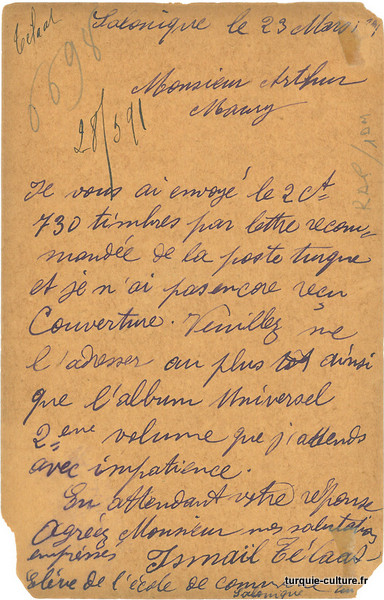 Salonique le 23 Mars
6698
28/3 91
Monsieur Arthur
Maury
Je vous ai envoyé le 2 ct
730 timbres par lettre recom-
mandée de la poste turque
et je n'ai pas encore reçu
Couverture. Veuillez me
l'adresser au plus tôt ainsi
que l'album Universel
2eme volume que j'attends
avec impatience.
En attendant votre réponse
Agréez Monsieur mes salutations
empressés Ismail
Elève de l'école de commerce
Salonique
turquie-culture.fr